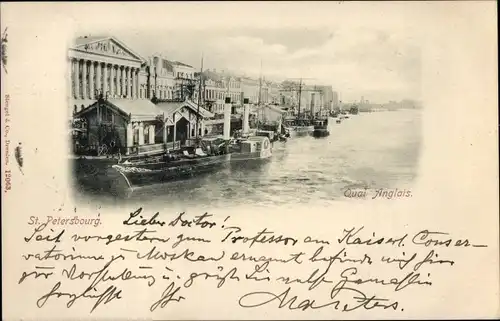 Stengel & Co., Dresden 12063.
Quai Anglais.
St. Petersbourg.
Lieber Doctor!
Seit vorgestern zum Professor am Kaiserl. Conser-
vatorium zu Moskau ernannt, befinde mich hier
zur Vorstellung u. grüße Sie nebst Gemahlin
herzlichst Ihr